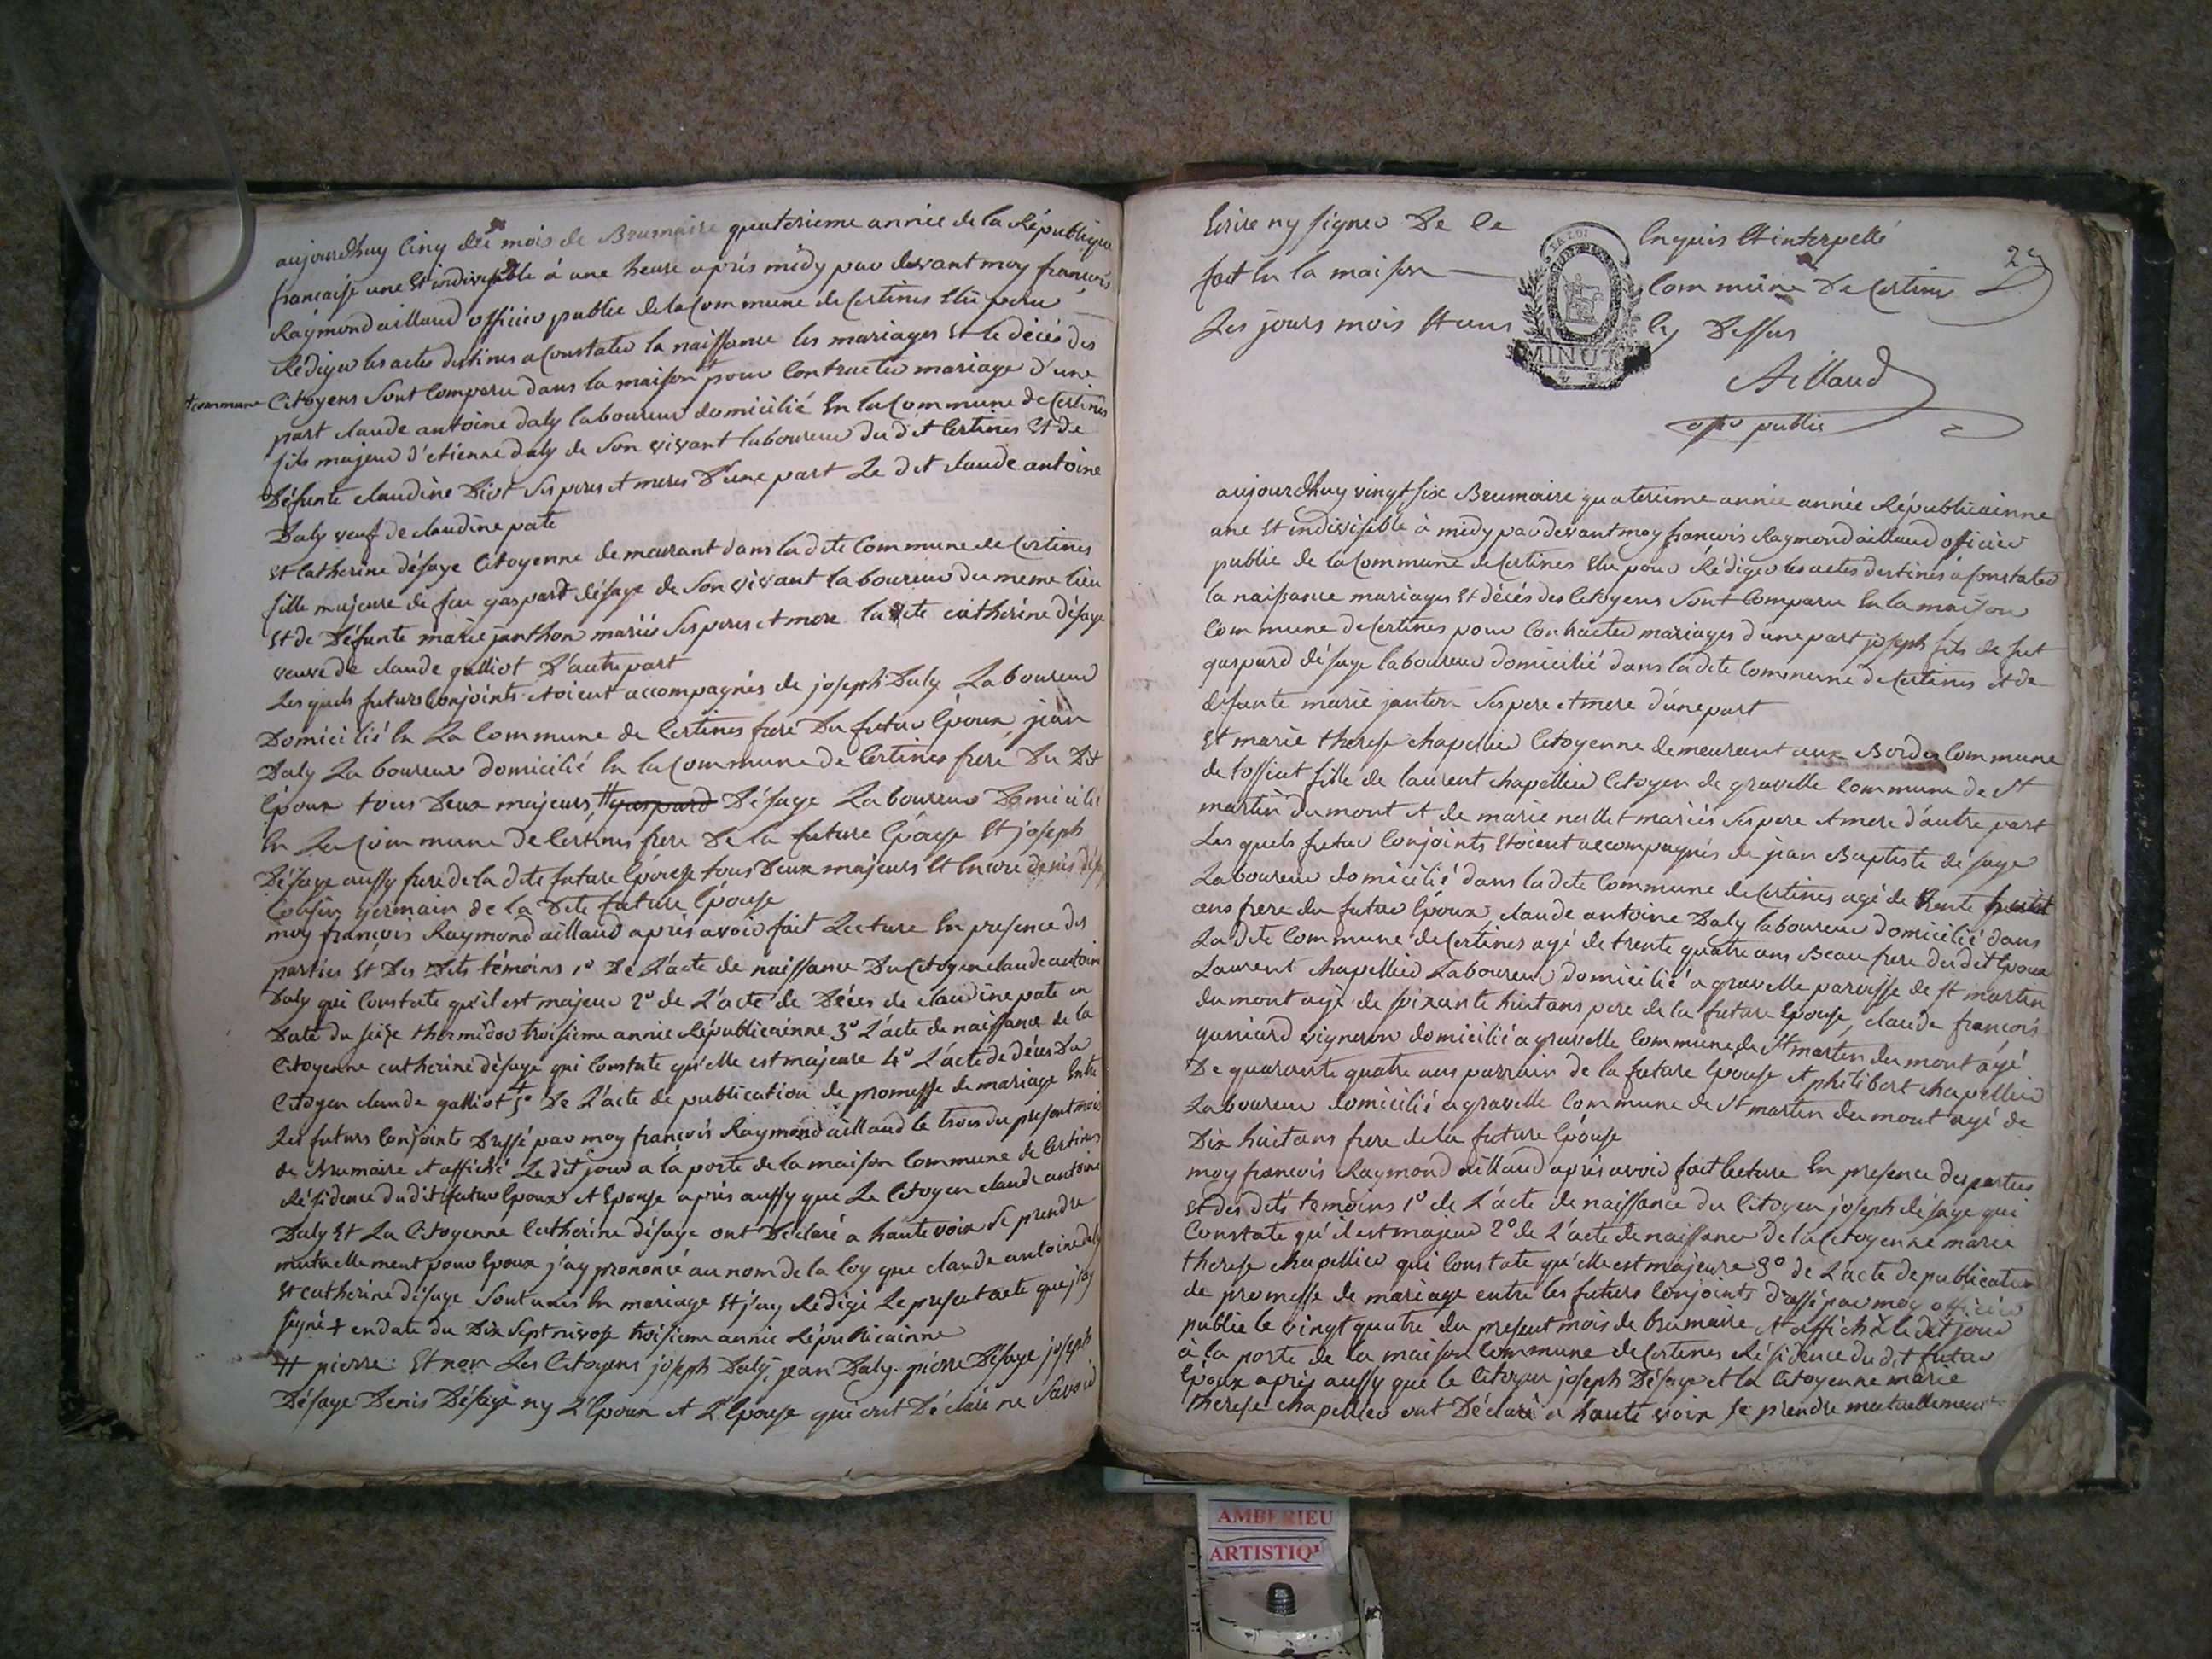 aujourdhuy Cinq du mois de Brumaire quaterieme année de la République
francaise une Et indivisible à une heure après midy par devant moy françois
Raymond aillaud officier public de la Commune de Certines Elu pour
Rédiger les actes destines a Constater la naissance les mariages Et le décés des
Citoyens sont Comparu dans la maison + pour Contracter mariage d'une
+ commune
part claude antoine Daly laboureur domicilié En la Commune de Certines
fils majeur d'etienne daly de son vivant laboureur du dit Certines Et de
Défunte claudine Diot ses peres et meres D'une part Le dit claude antoine
Daly veuf de claudine pate
Et Catherine désage Citoyenne demeurant dans la dite Commune de Certines
fille majeure de feu gaspart désage de son vivant laboureur du meme lieu
Et de Défunte marie janthon mariés ses peres et mere la dite catherine désage
veuve de claude galliot D'autre part
Les quels futurs Conjoints Etoient accompagnés de joseph Daly Laboureur
Domicilié En La Commune de Certines frere Du futur Epoux, jean
Daly Laboureur domicilié En la Commune de Certines frere Du Dit
Epoux tous Deux majeurs, # gaspard Désage Laboureur Domicilié
En La Commune de Certines frere De la future Epouse Et joseph
Désage aussy frere de la dite future Epouse tous Deux majeurs Et Encore denis
Cousin germain de la Dite future Epouse
moy françois Raymond aillaud après avoir fait Lecture En presence des
parties Et Des Dits témoins 1° De L'acte de naissance Du Citoyen claude antoine
Daly qui Constate qu'il est majeur 2° de L'acte de Décès de claudine pate en
Date du seize thermidor troisieme année Républicainne 3° L'acte de naissance de la
Citoyenne catherine désage qui Constate qu'elle est majeure 4° L'acte de décès Du
Citoyen claude galliot + 5° De L'acte de publication de promesse de mariage Entre
Les futurs Conjoints Dressé par moy françois Raymond aillaud le trois du present mois
de Brumaire et affiché Le dit jour a la porte de la maison Commune de Certines
Résidence du dit futur Epoux et Epouse après aussy que Le Citoyen claude antoine
Daly Et La Citoyenne Catherine désage ont Déclaré a haute voix Se prendre
mutuellement pour Epoux j'ay prononcé au nom de la loy que claude antoine daly
Et catherine désage Sont unis En mariage Et j'ay Rédigé Le present acte que j'ay
signé + en date du Dix Sept nivose troisieme année Républicainne
# pierre: Et non Les Citoyens joseph Daly, jean Daly. pierre Désage joseph
Désage Denis Désage ny L'Epoux et L'Epouse qui ont Déclaré ne Savoir
Ecrire ny signer De Ce Enquis Et interpellé
fait En la maison Commune De Certines
Les jours mois Et ans Cy Dessus
29
LA LOI
MINUTE
Aillaud
offer public
aujourdhuy vingt six Brumaire quaterieme année année Républicainne
une Et indivisible à midy par devant moy françois Raymond aillaud officier
public de la Commune de Certines Elu pour Rédiger les actes destinés a Constater
la naissance mariages Et décés des Citoyens Sont Comparu En la maison
Commune de Certines pour Contracter mariages d'une part joseph fils de fut
gaspard désage laboureur domicilié dans la dite Commune de Certines et de
defunte marie janton Ses pere et mere d'une part
Et marie therese chapellier Citoyenne demeurant aux Bordes Commune
de tossiat fille de laurent chapellier Citoyen de gravelle Commune de St
martin du mont et de marie nallet mariés Ses pere et mere d'autre part
Les quels futur Conjoints Etoient accompagnés de jean Baptiste désage
Laboureur domicilié dans la dite Commune de Certines agé de trente
ans frere du futur Epoux, claude antoine Daly laboureur domicilié dans
La dite Commune de Certines agé de trente quatre ans Beau frere du dit Epoux
Laurent chapellier Laboureur domicilié a gravelle paroisse de st martin
du mont agé de soixante huit ans pere de la future Epouse, claude françois
guniard vigneron domicilié a gravelle Commune de St martin du mont agé
De quarante quatre ans parrain de la future Epouse et philibert chapellier
Laboureur domicilié a gravelle Commune de St martin du mont agé de
Dix huit ans frere de la future Epouse
moy françois Raymond aillaud après avoir fait lecture En presence des parties
Et des dits temoins 1° de L'acte de naissance du Citoyen joseph désage qui
Constate qu'il est majeur 2° de L'acte de naissance de la Citoyenne marie
therese chapellier qui Constate qu'elle est majeure 3° de L'acte de publication
de promesse de mariage entre les futurs Conjoints Dressé par moy officier
public le vingt quatre du present mois de brumaire et affiché le dit jour
à la porte de la maison Commune de Certines Résidence du dit futur
Epoux après aussy que le Citoyen joseph Désage et la Citoyenne marie
therese chapellier ont Déclaré a haute voix se prendre mutuellement
AMBERIEU
ARTISTIQ